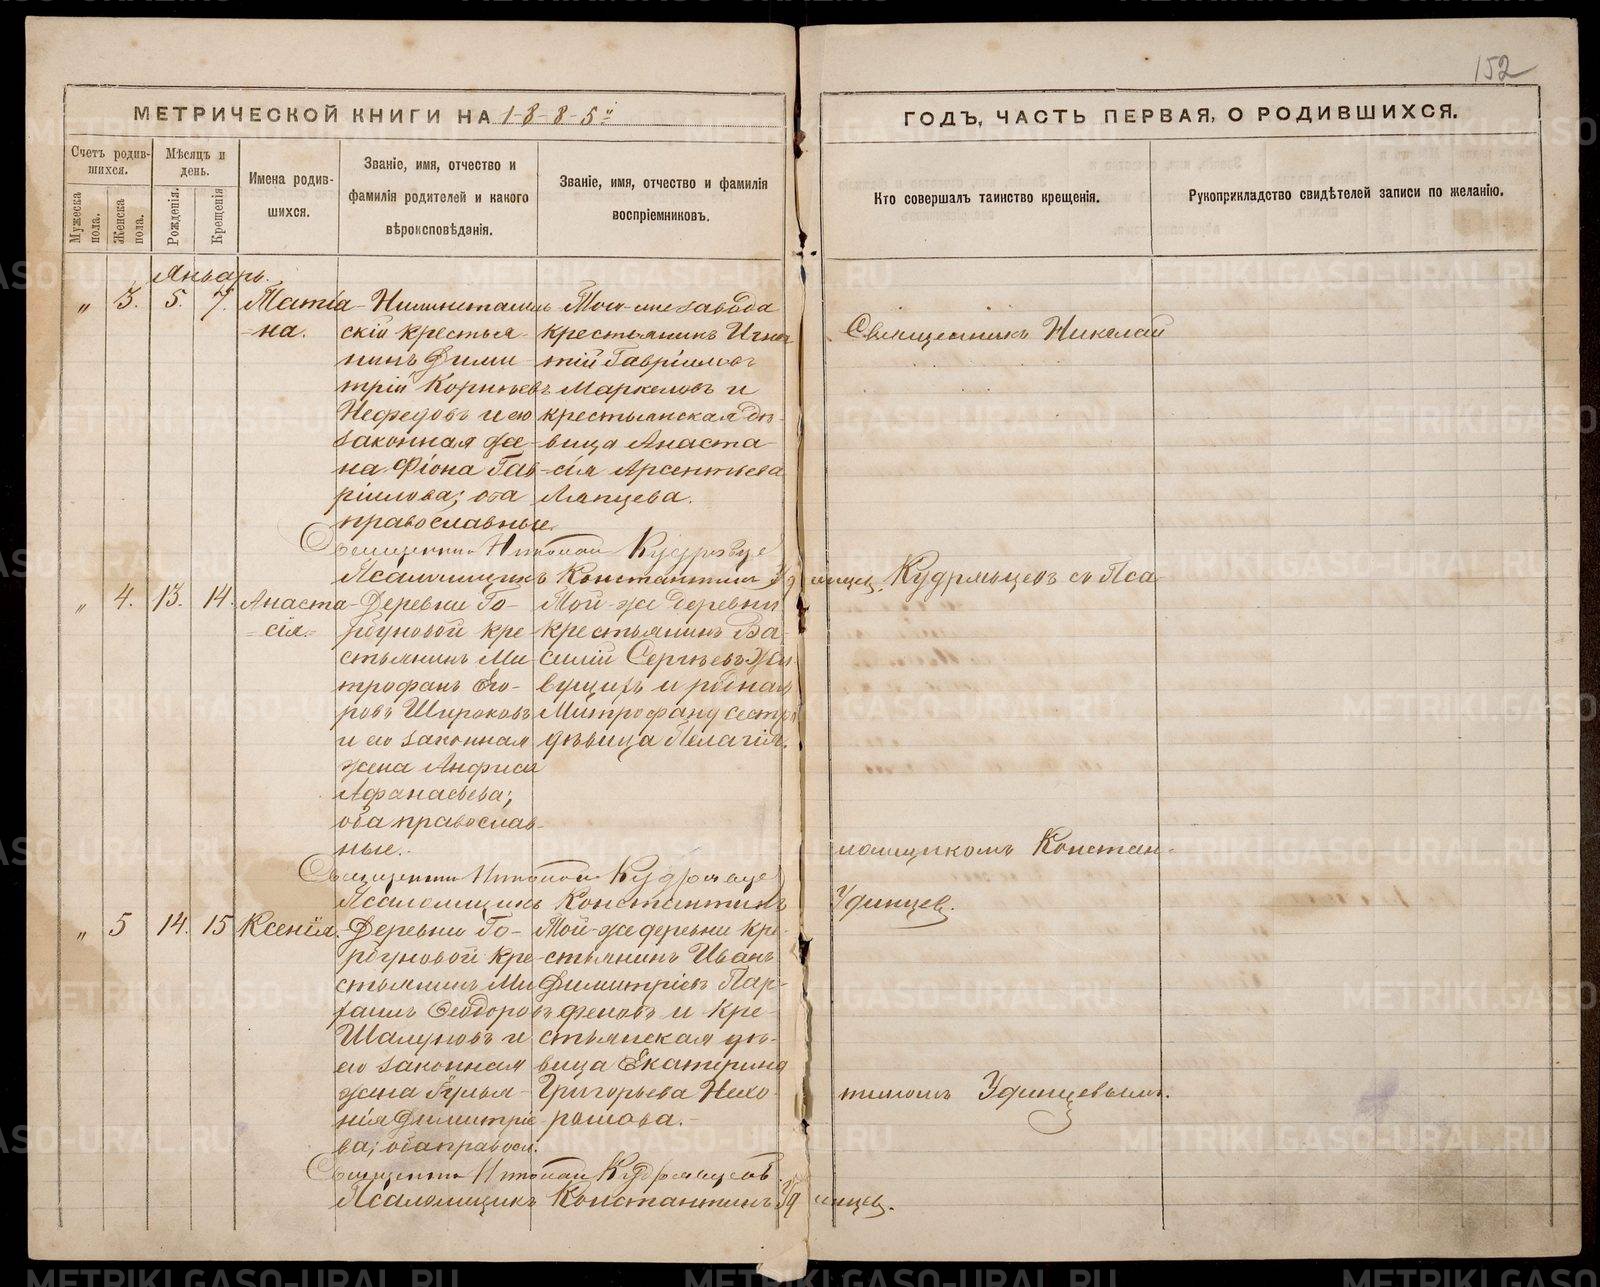 152
МЕТРИЧЕСКОЙ КНИГИ НА 1885й
ГОДЪ, ЧАСТЬ ПЕРВАЯ, О РОДИВШИХСЯ.
Счетъ родившихся.
Мужеска пола.
Женска пола.
Мѣсяцъ и день.
Рожденія.
Крещенія
Имена родившихся.
Званіе, имя, отчество и фамилія родителей и какого вѣроисповѣданія.
Званіе, имя, отчество и фамилія воспріемниковъ.
Кто совершалъ таинство крещенія.
Рукоприкладство свидѣтелей записи по желанію.
Январь.
„ 3. 5. 7. Татіа-
на.
скій крестья-
нинъ Дими-
трій Корнѣевъ
Нефедовъ и его
законная же-
на Фіона Гав-
ріилова; оба
православные.
Того-же завода
крестьянинъ Игна
тій Гавріиловъ
Маркеловъ и
крестьянская дѣ-
вица Анаста-
сія Арсентьева
Ляпцева.
Священникъ Николай
Священникъ Николай
Псаломщикъ Константинъ Удинцев.
„ 4. 13. 14. Анаста-
сія.
Деревни Го-
рбуновой кре-
стьянинъ Ми-
трофанъ Его-
ровъ Широковъ
и его законная
жена Анфиса
Афанасьева;
оба православ-
ные.
Той-же деревни
крестьянинъ Ва-
силій Сергѣевъ
и
Митрофану сестра
дѣвица Пелагія.
со Пса-
ломщикомъ Констан-
Священникъ Николай
Псаломщикъ Константинъ Удинцев.
„ 5 14. 15 Ксенія.
Деревни Го-
рбуновой кре-
стьянинъ Ми-
хаилъ Ѳеодоровъ
Шалуновъ и
его законная
жена Іулья-
нія Димитріе
ва; оба правосл.
Той-же деревни кре-
стьянинъ Иванъ
Димитріевъ Пар-
феновъ и кре-
стьянская дѣ-
вица Екатерина
Григорьева Нехо-
рошова.
тиномъ Удинцевымъ.
Священникъ Николай
Псаломщикъ Константинъ Удинцев.
METRIKI.GASO-URAL.RU